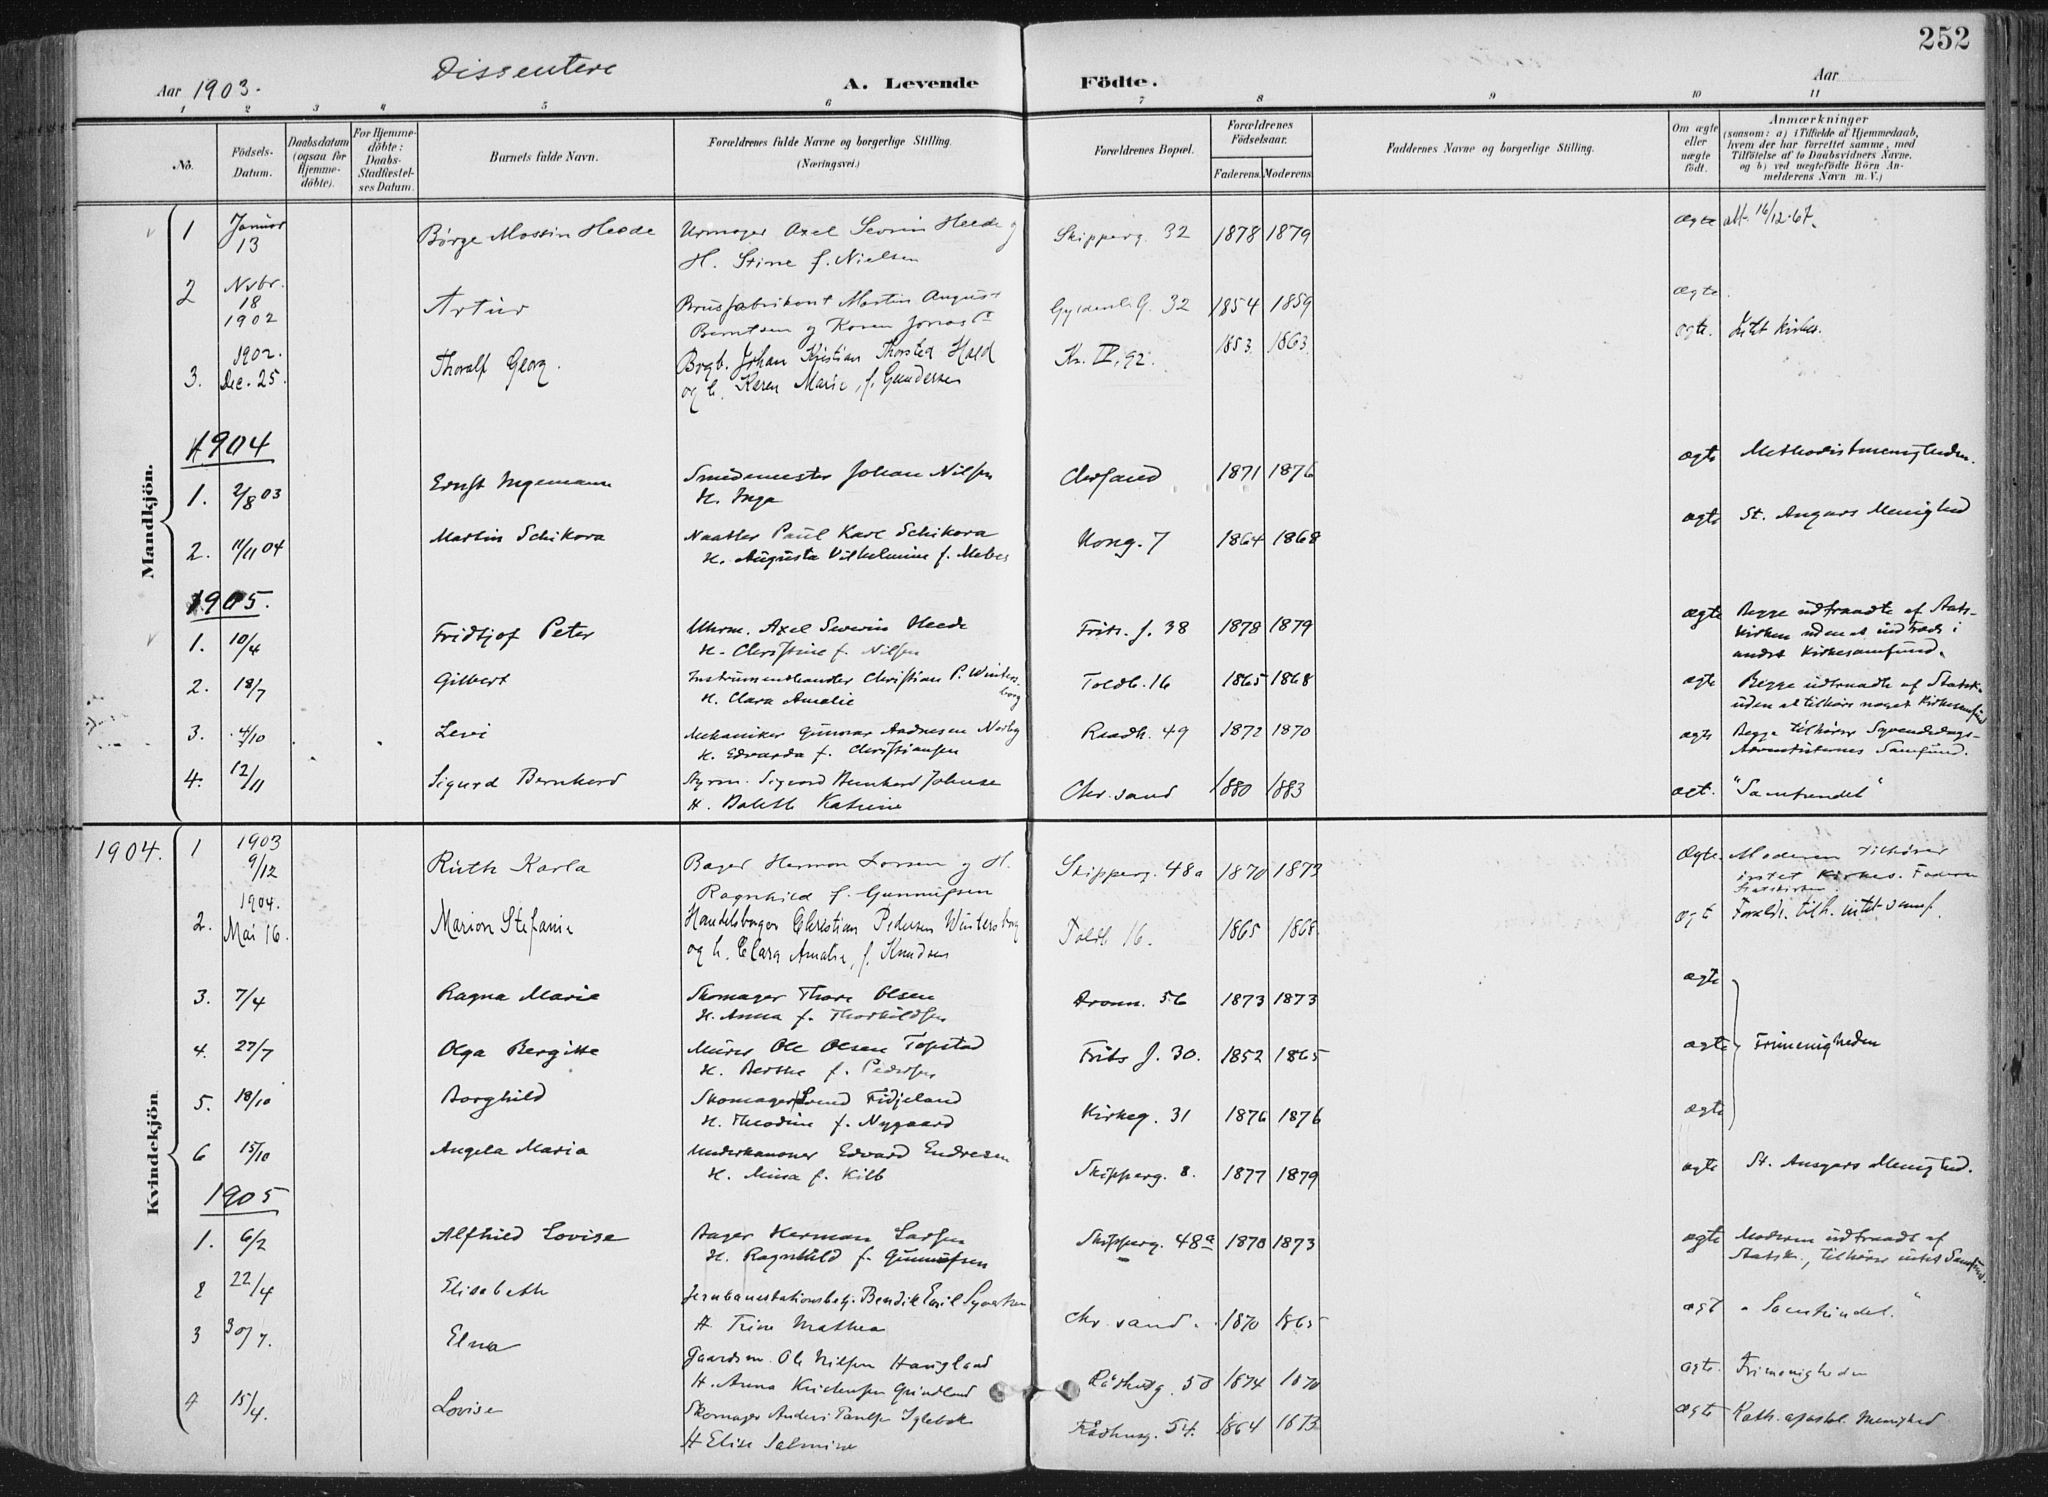 252
Dissentere
Aar 1903.
A. Levende Födte.
Aar
1 2 3 4 5 6 7 8 9 10 11
No.
Födsels-Datum.
Daabsdatum (ogsaa for Hjemme-döbte).
For Hjemme-döbte: Daabs-Stadfæstel-ses Datum.
Barnets fulde Navn.
Forældrenes fulde Navne og borgerlige Stilling. (Næringsvei.)
Forældrenes Bopæl.
Forældrenes Födselsaar.
Faderens. Moderens.
Faddernes Navne og borgerlige Stilling.
Om ægte eller uægte födt.
Anmærkninger (saasom: a) i Tilfælde af Hjemmedaab, hvem der har forrettet samme, med Tilföielse af to Daabsvidners Navne, og b) ved uægtefödte Börn An-melderens Navn m. V.)
Mandkjön.
1 Januar 13 Børge Heede Urmager Axel Severin Heede og Skipperg. 32 1878 1879 ægte att. 16/12-67.
H. Stine f. Nielsen
2 Nvbr. 18 1902 Artur Brusfabrikant Martin August Gyldenl. G. 32 1854 1859 ægte.
Berntsen og Karen
3. 1902. Dec. 25. Thoralf Georg. Brgb. Johan Kristian Thorsted Hald Kr. IV, 92. 1853 1863 ægte. Intet Kirkes.
og h. Karen Marie, f. Gundersen
1904
1. 2/8 03 Ernst Ingemann Smedemester Johan Nilsen Chrsand 1871 1876 ægte Methodistmenigheden.
H. Inga
2. 11/11 04 Martin Schikora Paul Karl Schikora Kong. 7 1864 1868 ægte St. Ansgars Menighed
H. Augusta Vilhelmine f.
1905.
1. 10/4 Fridtjof Peter Uhrm. Axel Severin Heede Frits. J. 38 1878 1879 ægte Begge udtraadte af Stats-
H. Christine f. Nilsen kirken uden at indtræde i
andet Kirkesamfund.
2. 18/7 Gilbert Instrumenthandler Christian P. Winters- Toldb. 16 1865 1868 ægte Begge udtraadte af Statsk.
borg H. Clara Amalie uden at tilhøre noget Kirkesamfund
3. 4/10 Levi Mekaniker Gunnar Andresen Norby Raadh. 49 1872 1870 ægte Begge tilhører Syvendedags-
H. Edvarda f. Christiansen Adventisternes Samfund.
4. 12/11 Sigurd Bernhard Styrm. Sigurd Bernhard Johnsen Chr.sand 1880 1883 ægt. "Samfundet"
H. Katrine
Kvindekjön
1904. 1 1903 9/12 Ruth Karla Bager Herman Larsen og H. Skipperg. 48a 1870 1873 ægte. Moderen tilhører
Ragnhild f. Gunnufsen intet Kirkes. Faderen
Statskirken.
2. 1904. Mai 16. Marion Stefanie Handelsborger Christian Pedersen Wintersborg Toldb 16. 1865 1868 ægt Foraldr. tilh. intet samf.
og h. Clara Amalia, f. Knudsen
3. 7/4 Ragna Marie Skomager Thore Olsen Dronn. 56 1873 1873 ægte
H. Anna f. Thorkildsen
4. 27/7 Olga Bergitte Murer Ole Olsen Topstad Frits J. 30. 1852 1865 ægte Frimenigheden
H. Berthe f. Pedersen
5. 18/10 Borghild Skomager Fidjeland Kirkeg. 31 1876 1876 ægte
H. Theodine f. Nygaard
6 15/10 Angela Maria Underkanoner Edvard Endresen Skipperg. 8. 1877 1879 ægte St. Ansgars Menighed.
H. Mina f. Kilb
1905
1. 6/2 Alfhild Lovise Bager Herman Larsen Skipperg. 48a 1870 1873 ægte Moderen udtraadt af
H. Ragnhild f. Gunnufsen Statsk., tilhører intet Samfund.
2 22/4 Elisabeth Jernbanestationsbetj. Bendik Emil Chr.sand. 1870 1865 ægt "Samfundet."
H. Trine Mathea
3 30/7. Elna Gaardsm. Ole Nilsen Haugland Rådhusg. 50 1874 1870 ægte. Frimenigheden
H. Anna Kristensen Grindland
4 15/4. Lovise Skomager Anders Rådhusg. 54. 1864 1873 ægte Kath. apostol. Menighed
H Elise